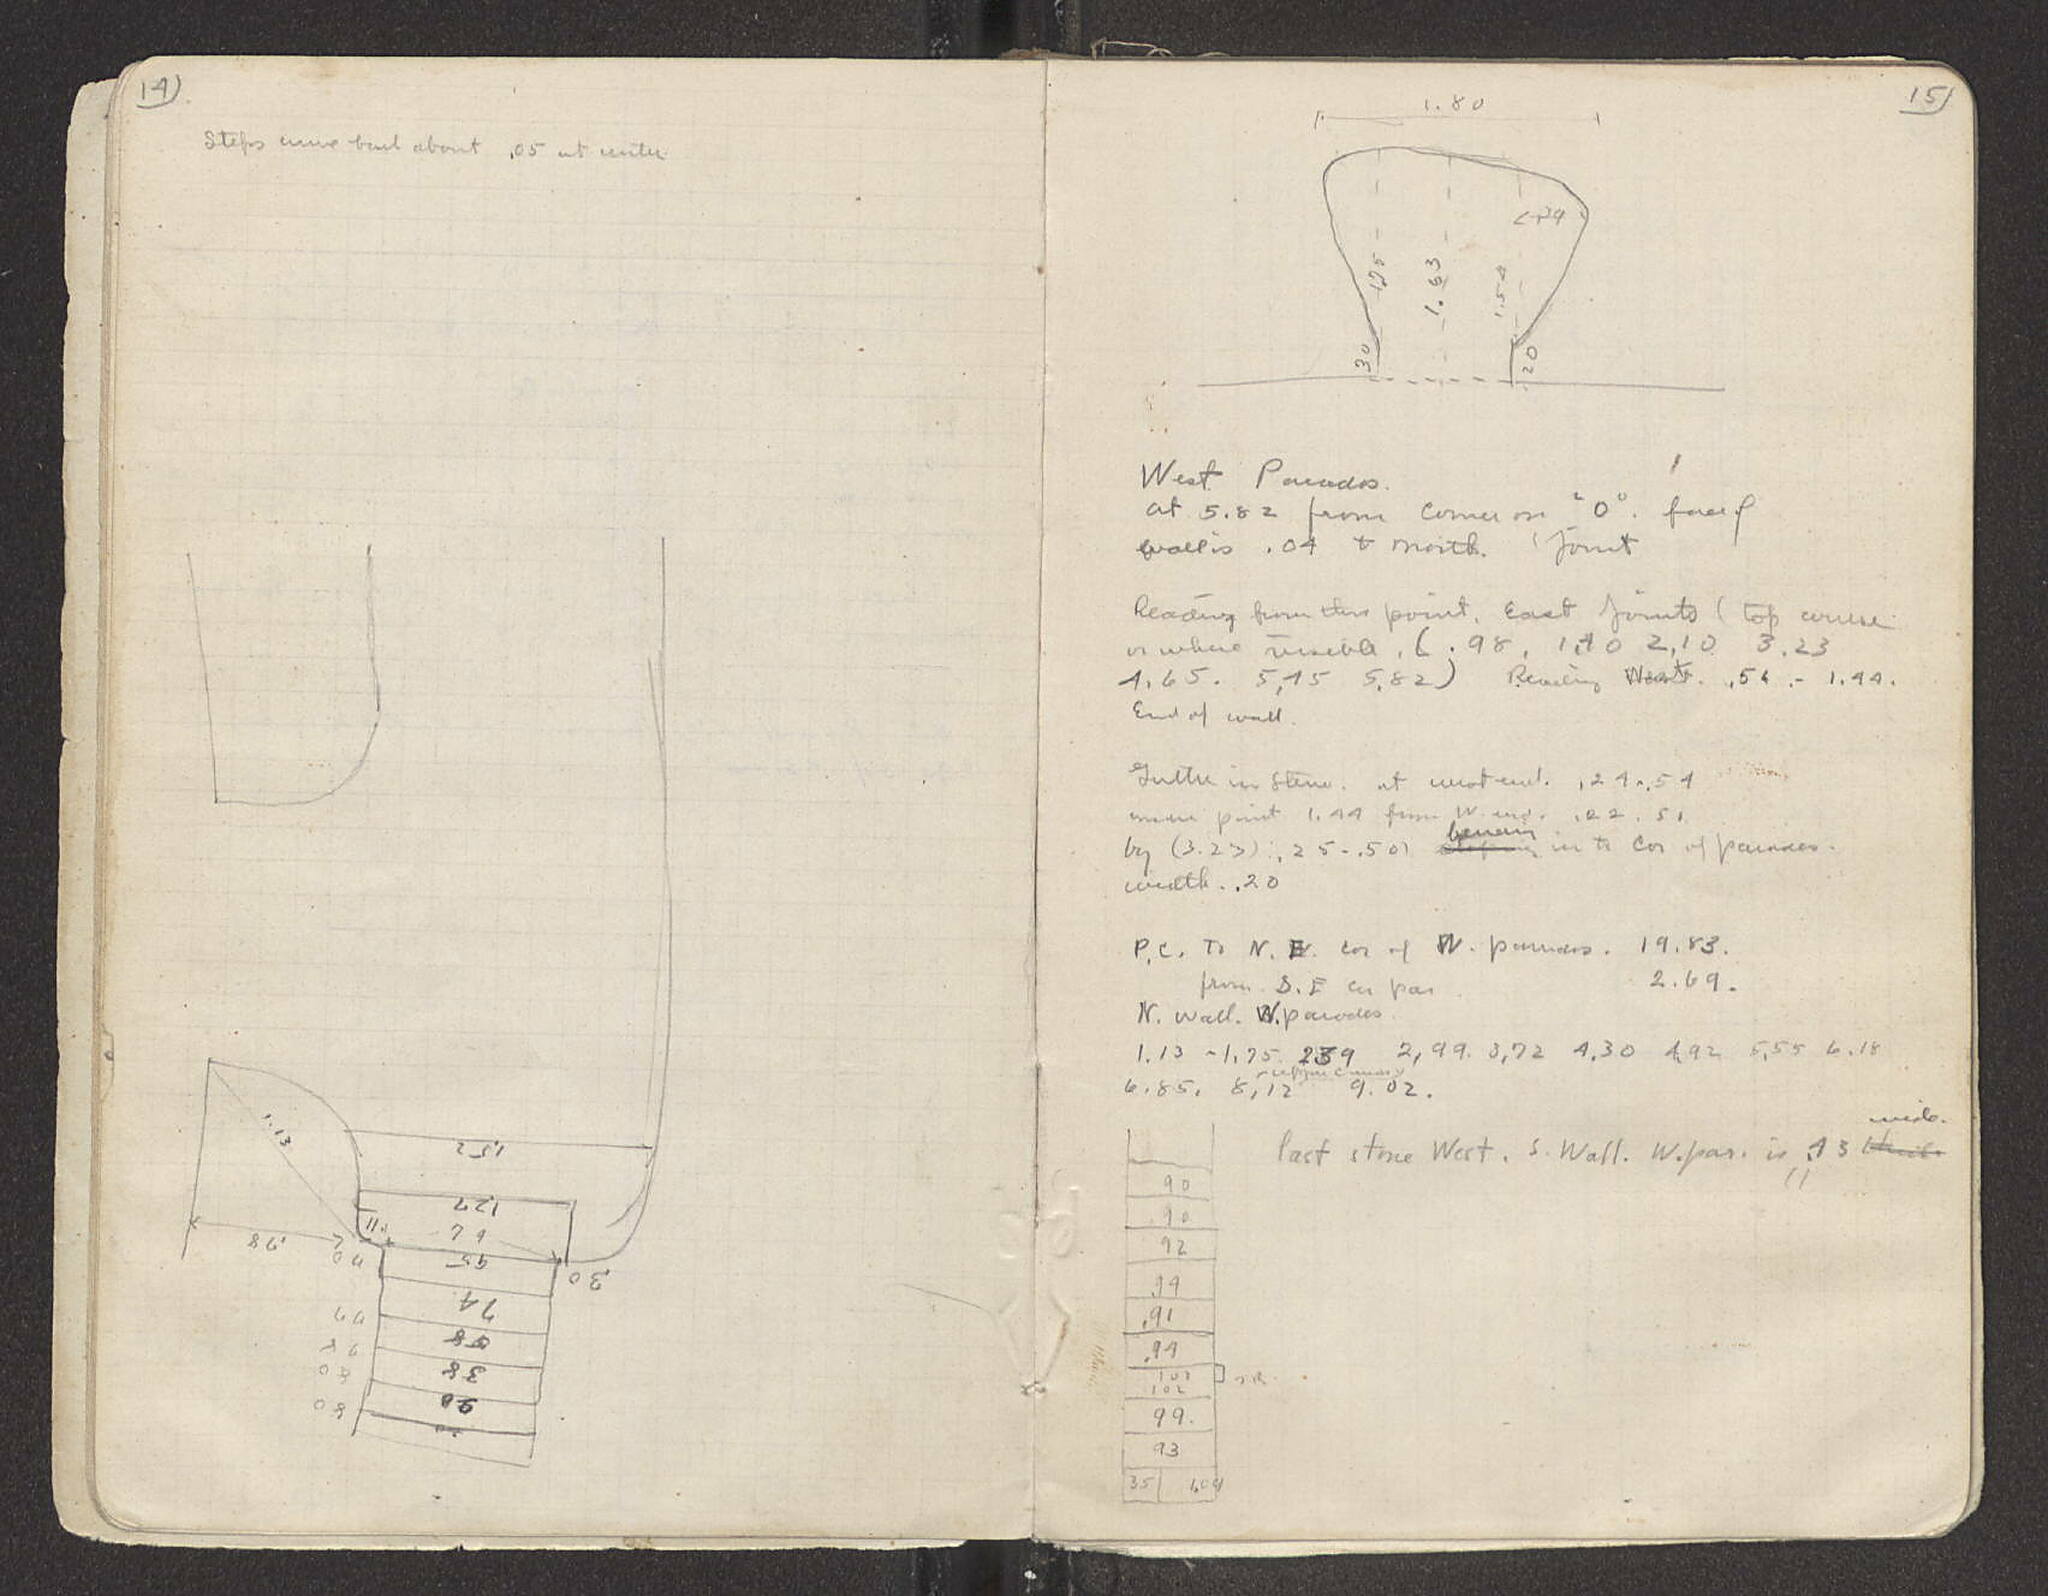 14)
Steps curve back about .05 at center
1.13
1.52
1.27
.11
.78
95
.30
74
58
38
80
80
15)
1.80
1.63
1.54
30
20
West Parados.
at 5.82 from corner on "O". face of
wall is .04 to north. Joint
Reading from this point. East Joints (top course
or where visible. (.98, 1.40 2.10 3.23
4.65. 5.45 5.82) Reading West. .56 - 1.44.
End of wall.
Gutter in Stone. at west end. .24-.54
point 1.44 from W. end. .22 .51
by (3.23) .25-.50 in to Cor of parados.
width. .20
P.C. To N.E. Cor of W. parados. 19.83.
from S.E cor par 2.69.
N. wall. W. parodos.
1.13 -1.75 2.39 2.99. 3.72 4.30 4.92 5.55 6.18
6.85. 8.12 9.02.
wide.
last stone West. S. Wall. W.par. is .43
90
.90
92
.94
.91
.94
102
102
99.
93
35 1.04